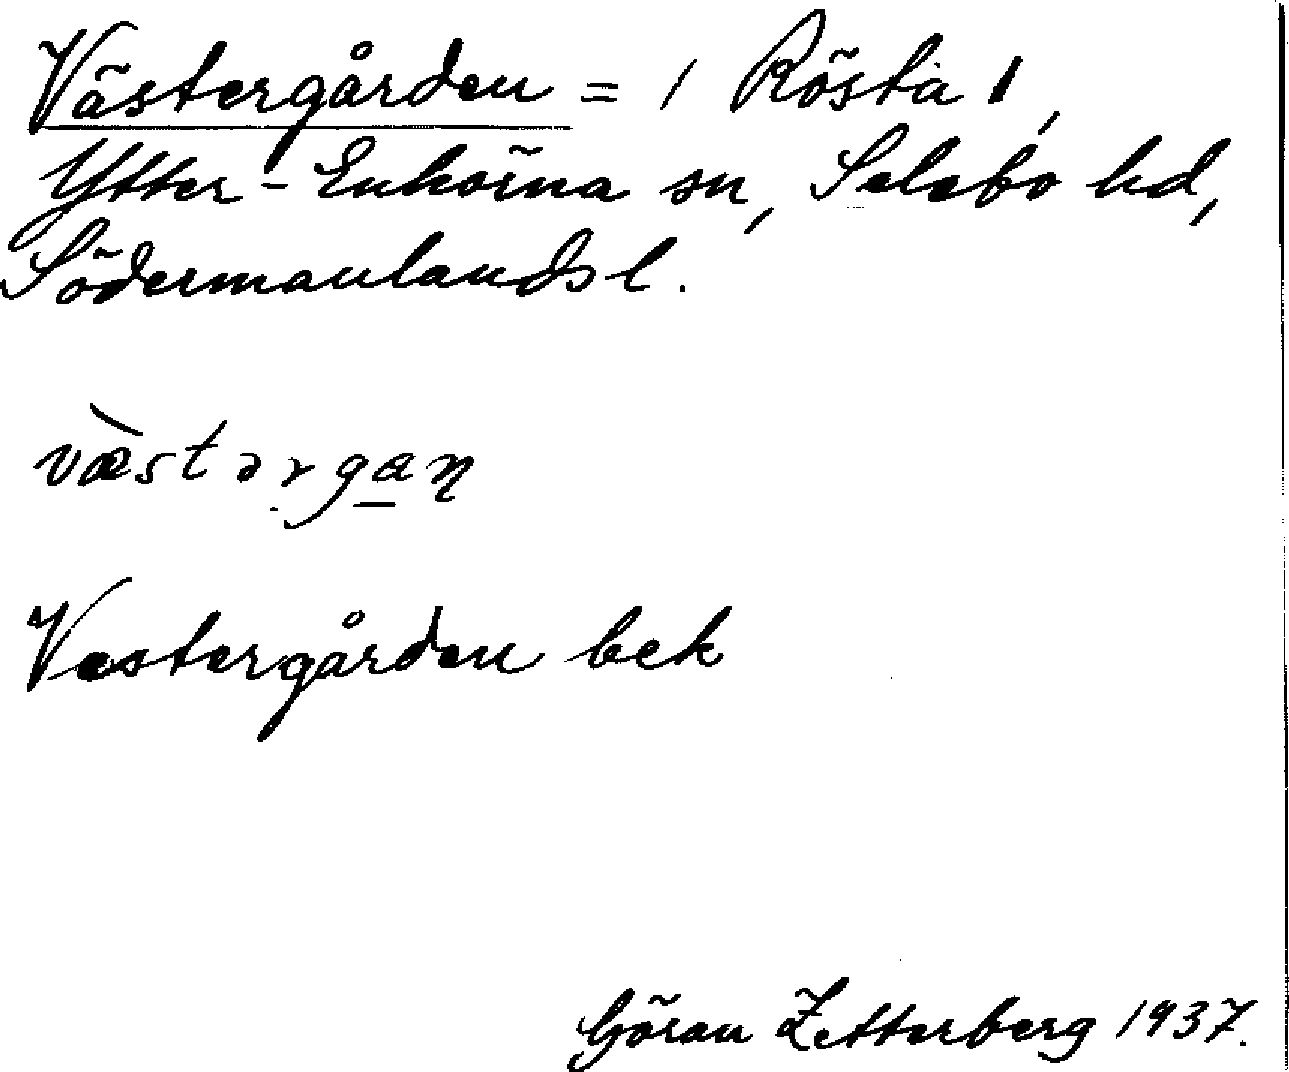 Västergården = / Rösta /,
Ytter-Enhörna sn, Selebo hd,
Södermanlands l.
væ̀stərgan
Vestergården bek
Göran Zetterberg 1937.